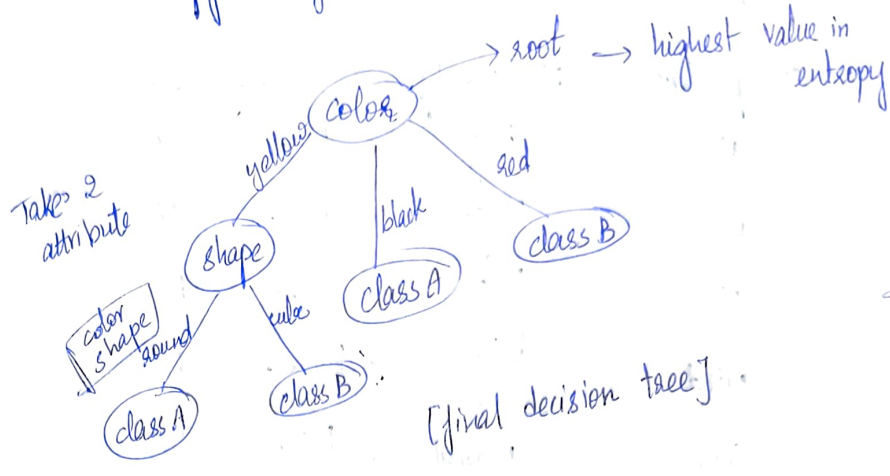 root → highest value in
entropy
color
yellow
black
red
Take 2
attribute
shape
class A
class B
color
shape
round
cube
class A
class B
[final decision tree]